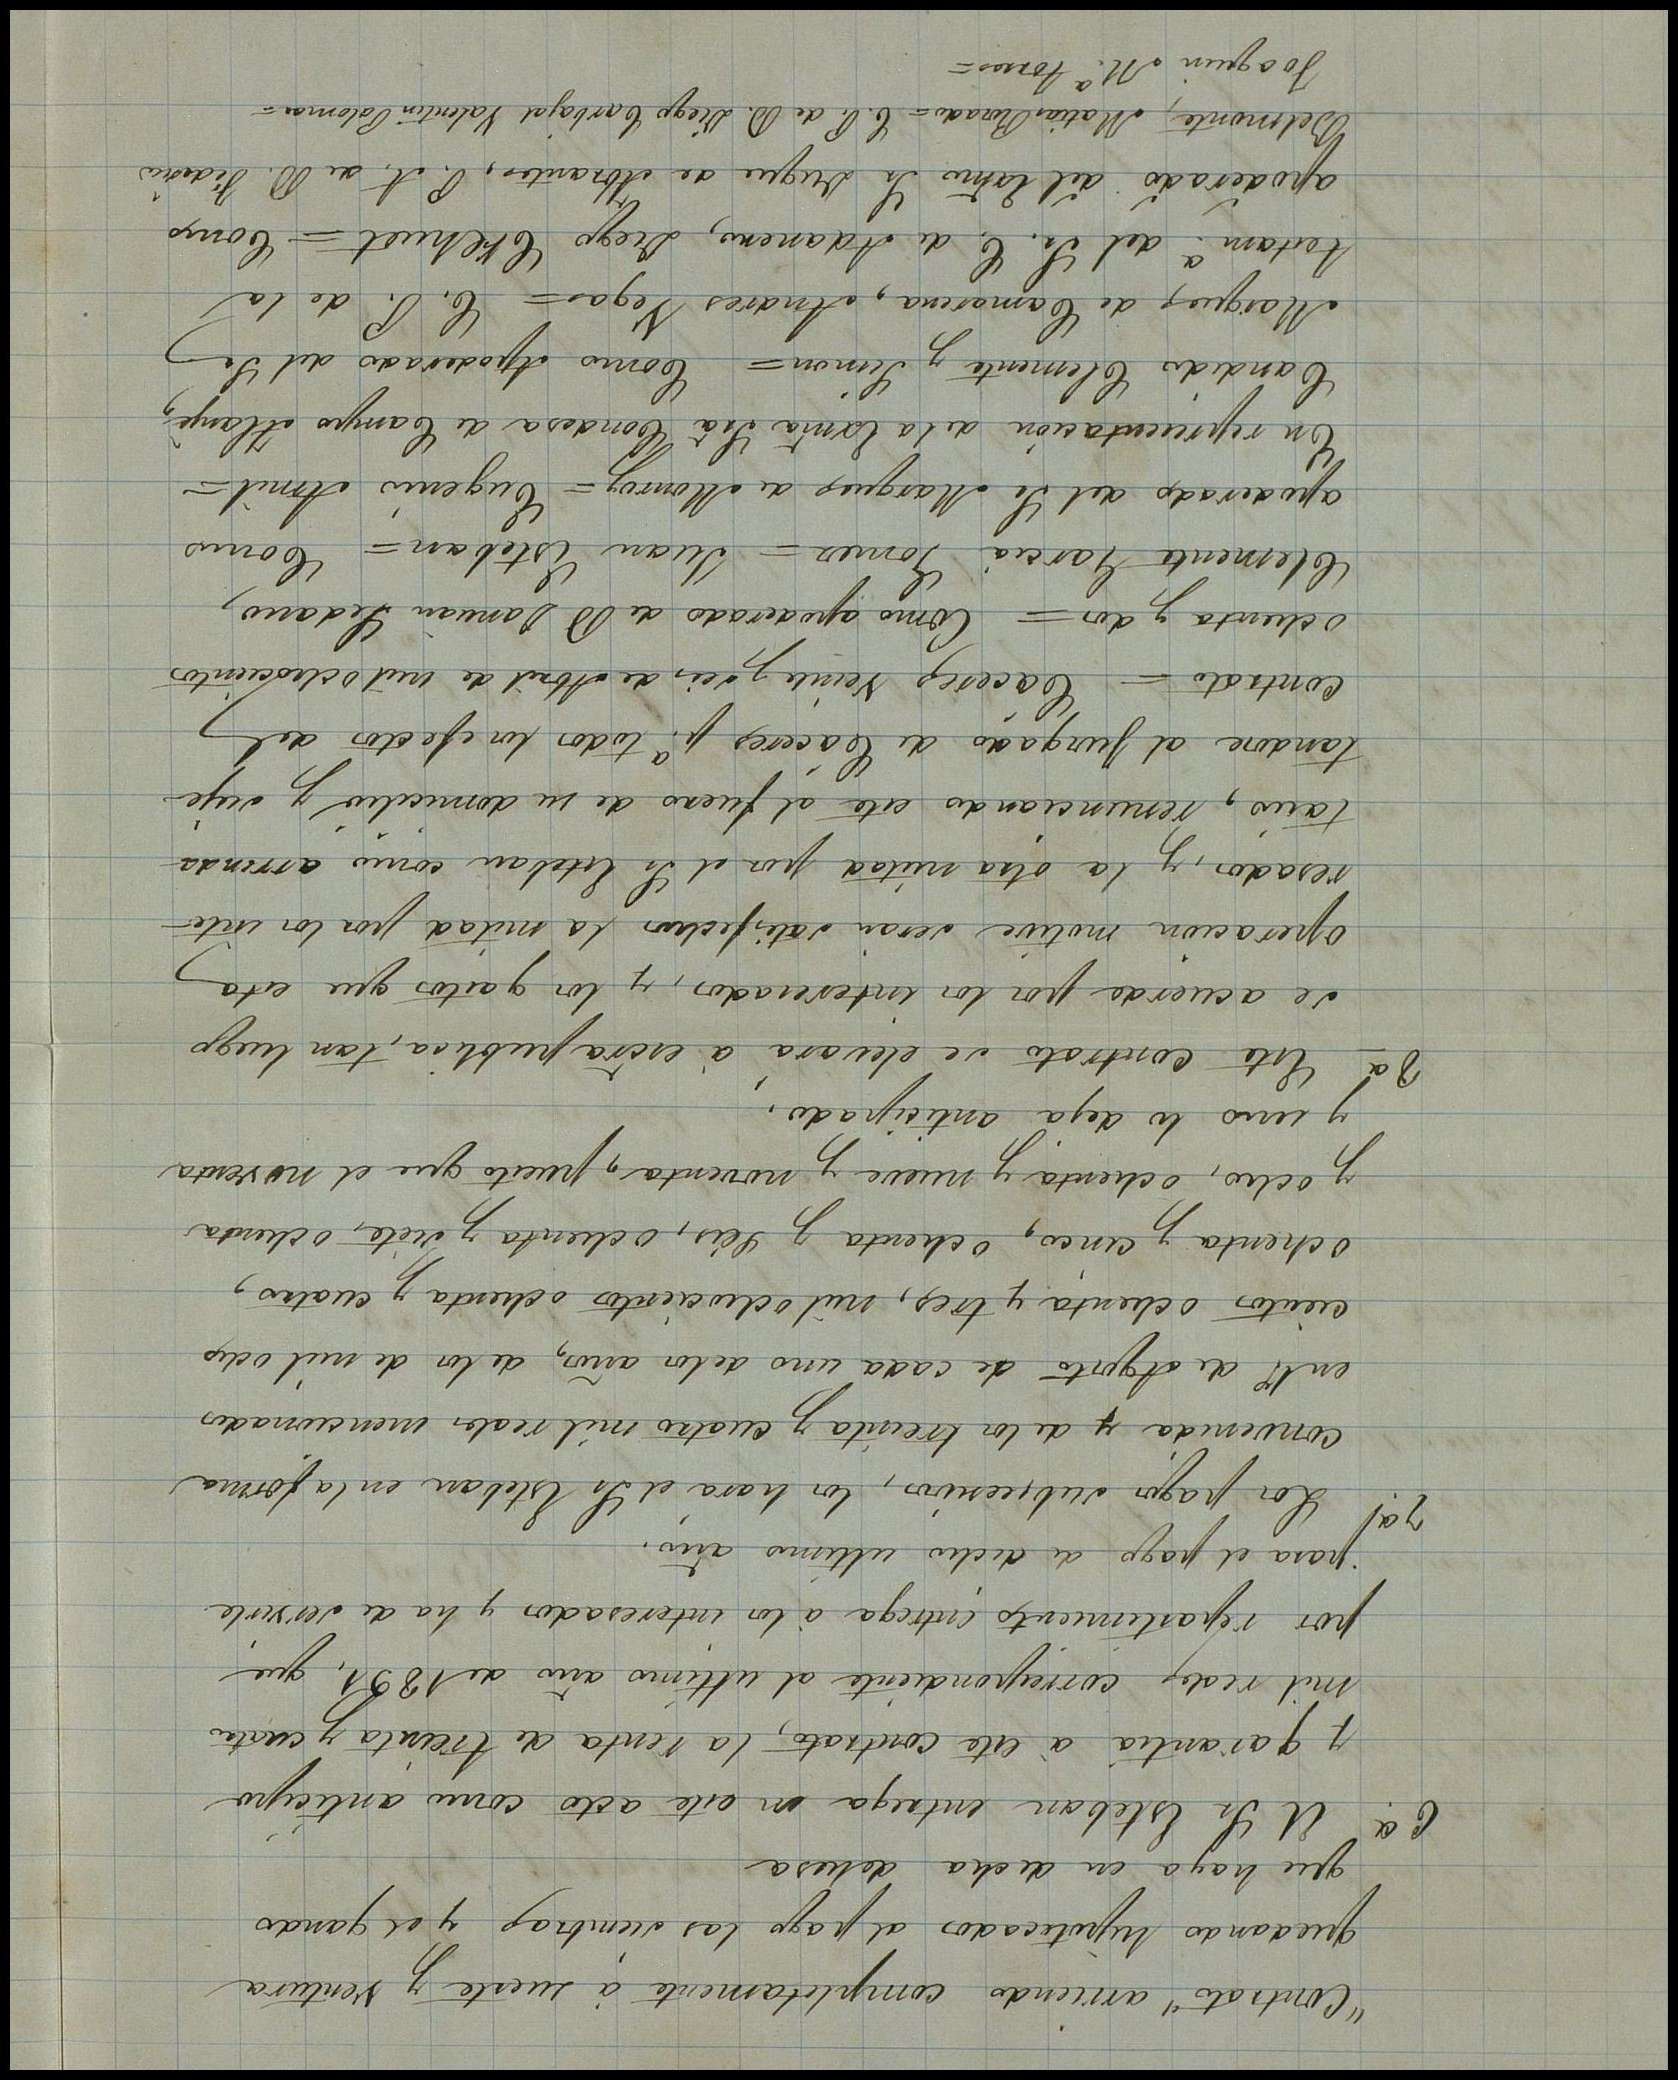 "Contrato" arriendo completamente á suerte y ventura
quedando hipotecados al pago las siembras y el ganado
que haya en dicha dehesa
6.a El Sr Esteban entrega en este acto como anticipo
y garantia á este contrato, la renta de treinta y cuatro
mil reales correspondiente al ultimo año de 1891, que
por repartimiento entrega á los interesados y ha de servirle
para el pago de dicho ultimo año.
7.a Los pagos subcesivos, los hara el Sr Esteban en la forma
convenida y de los treinta y cuatro mil reales mencionados
en 1º de Agosto de cada uno de los años, de los de mil ocho
cientos ochenta y tres, mil ochocientos ochenta y cuatro,
ochenta y cinco, ochenta y seis, ochenta y siete, ochenta
y ocho, ochenta y nueve y noventa, puesto que el noventa
y uno lo deja anticipado.
8.a Este contrato se elevara á escrã publica, tan luego
se acuerde por los interesados, y los gastos que esta
operacion motive seran satisfechos la mitad por los inte-
resados, y la otra mitad por el Sr Esteban como arrenda
tario, renunciando este al fuero de su domicilio y suje-
tandose al juzgado de Cáceres p.a todos los efectos del
contrato = Caceres veinte y seis de Abril de mil ochocientos
ochenta y dos = Como apoderado de D Damian Sedano,
Clemente Garcia Gomez = Juan Esteban = Como
apoderado del Sr Marques de Monroy = Eugenio Amil =
En representacion de la Exmã Srã Condesa de Campo Alange,
Candido Clemente y Simon = Como Apoderado del Sr
Marques de Camarena, Andres Vegas = C. P. de la
testam.a del Sr. C. de Adanero, Diego = Como
apoderado del Exmõ Sr Duque de Abrantes, P. A. de D. Federico
Belmonte, Matias = C. P. de D. Diego Carbajal Valentin Paloma =
Joaquin M.a Torres =